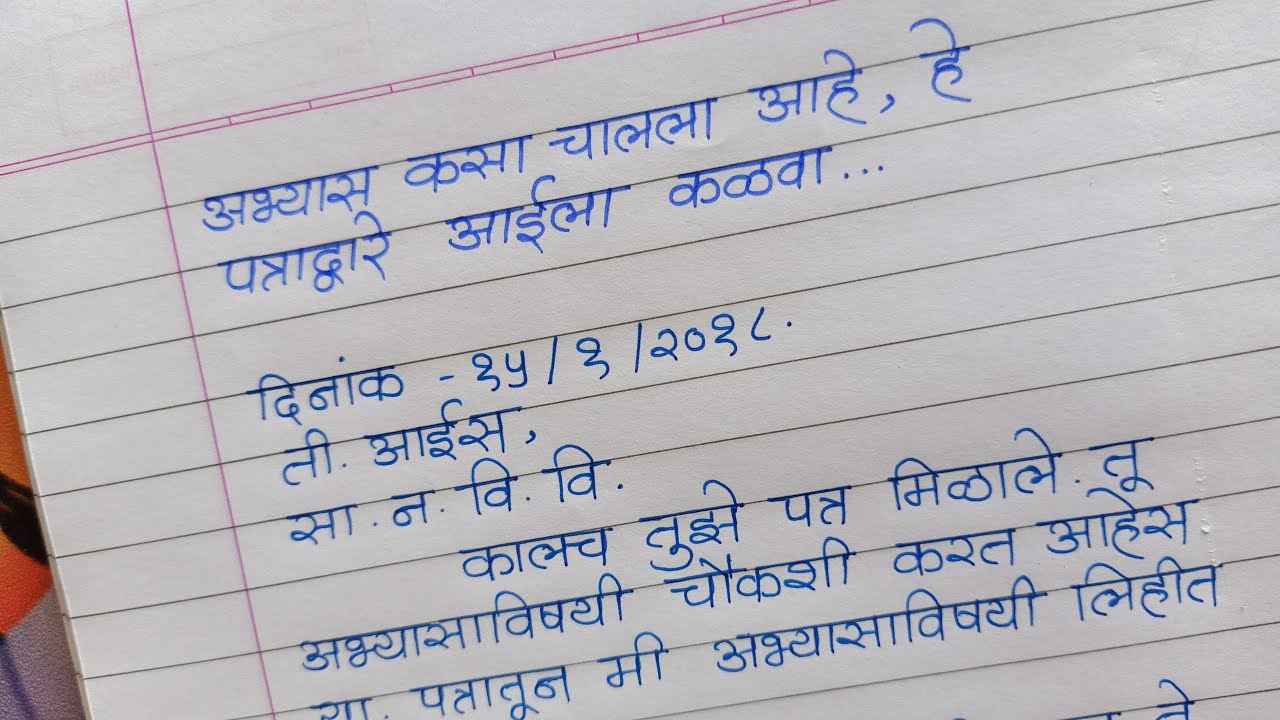 अभ्यास कसा चालला आहे, हे
पत्राद्वारे आईला कळवा...
दिनांक - १५/१/२०१८.
ती. आईस,
सा. न. वि. वि.
कालच तुझे पत्र मिळाले. तू
अभ्यासाविषयी चौकशी करत आहेस.
या. पत्रातून मी अभ्यासाविषयी लिहीत
ते